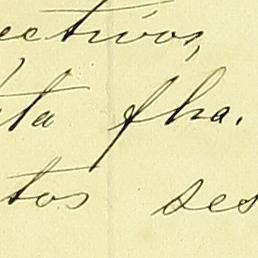 ectivos,
ta fha.
tos ses